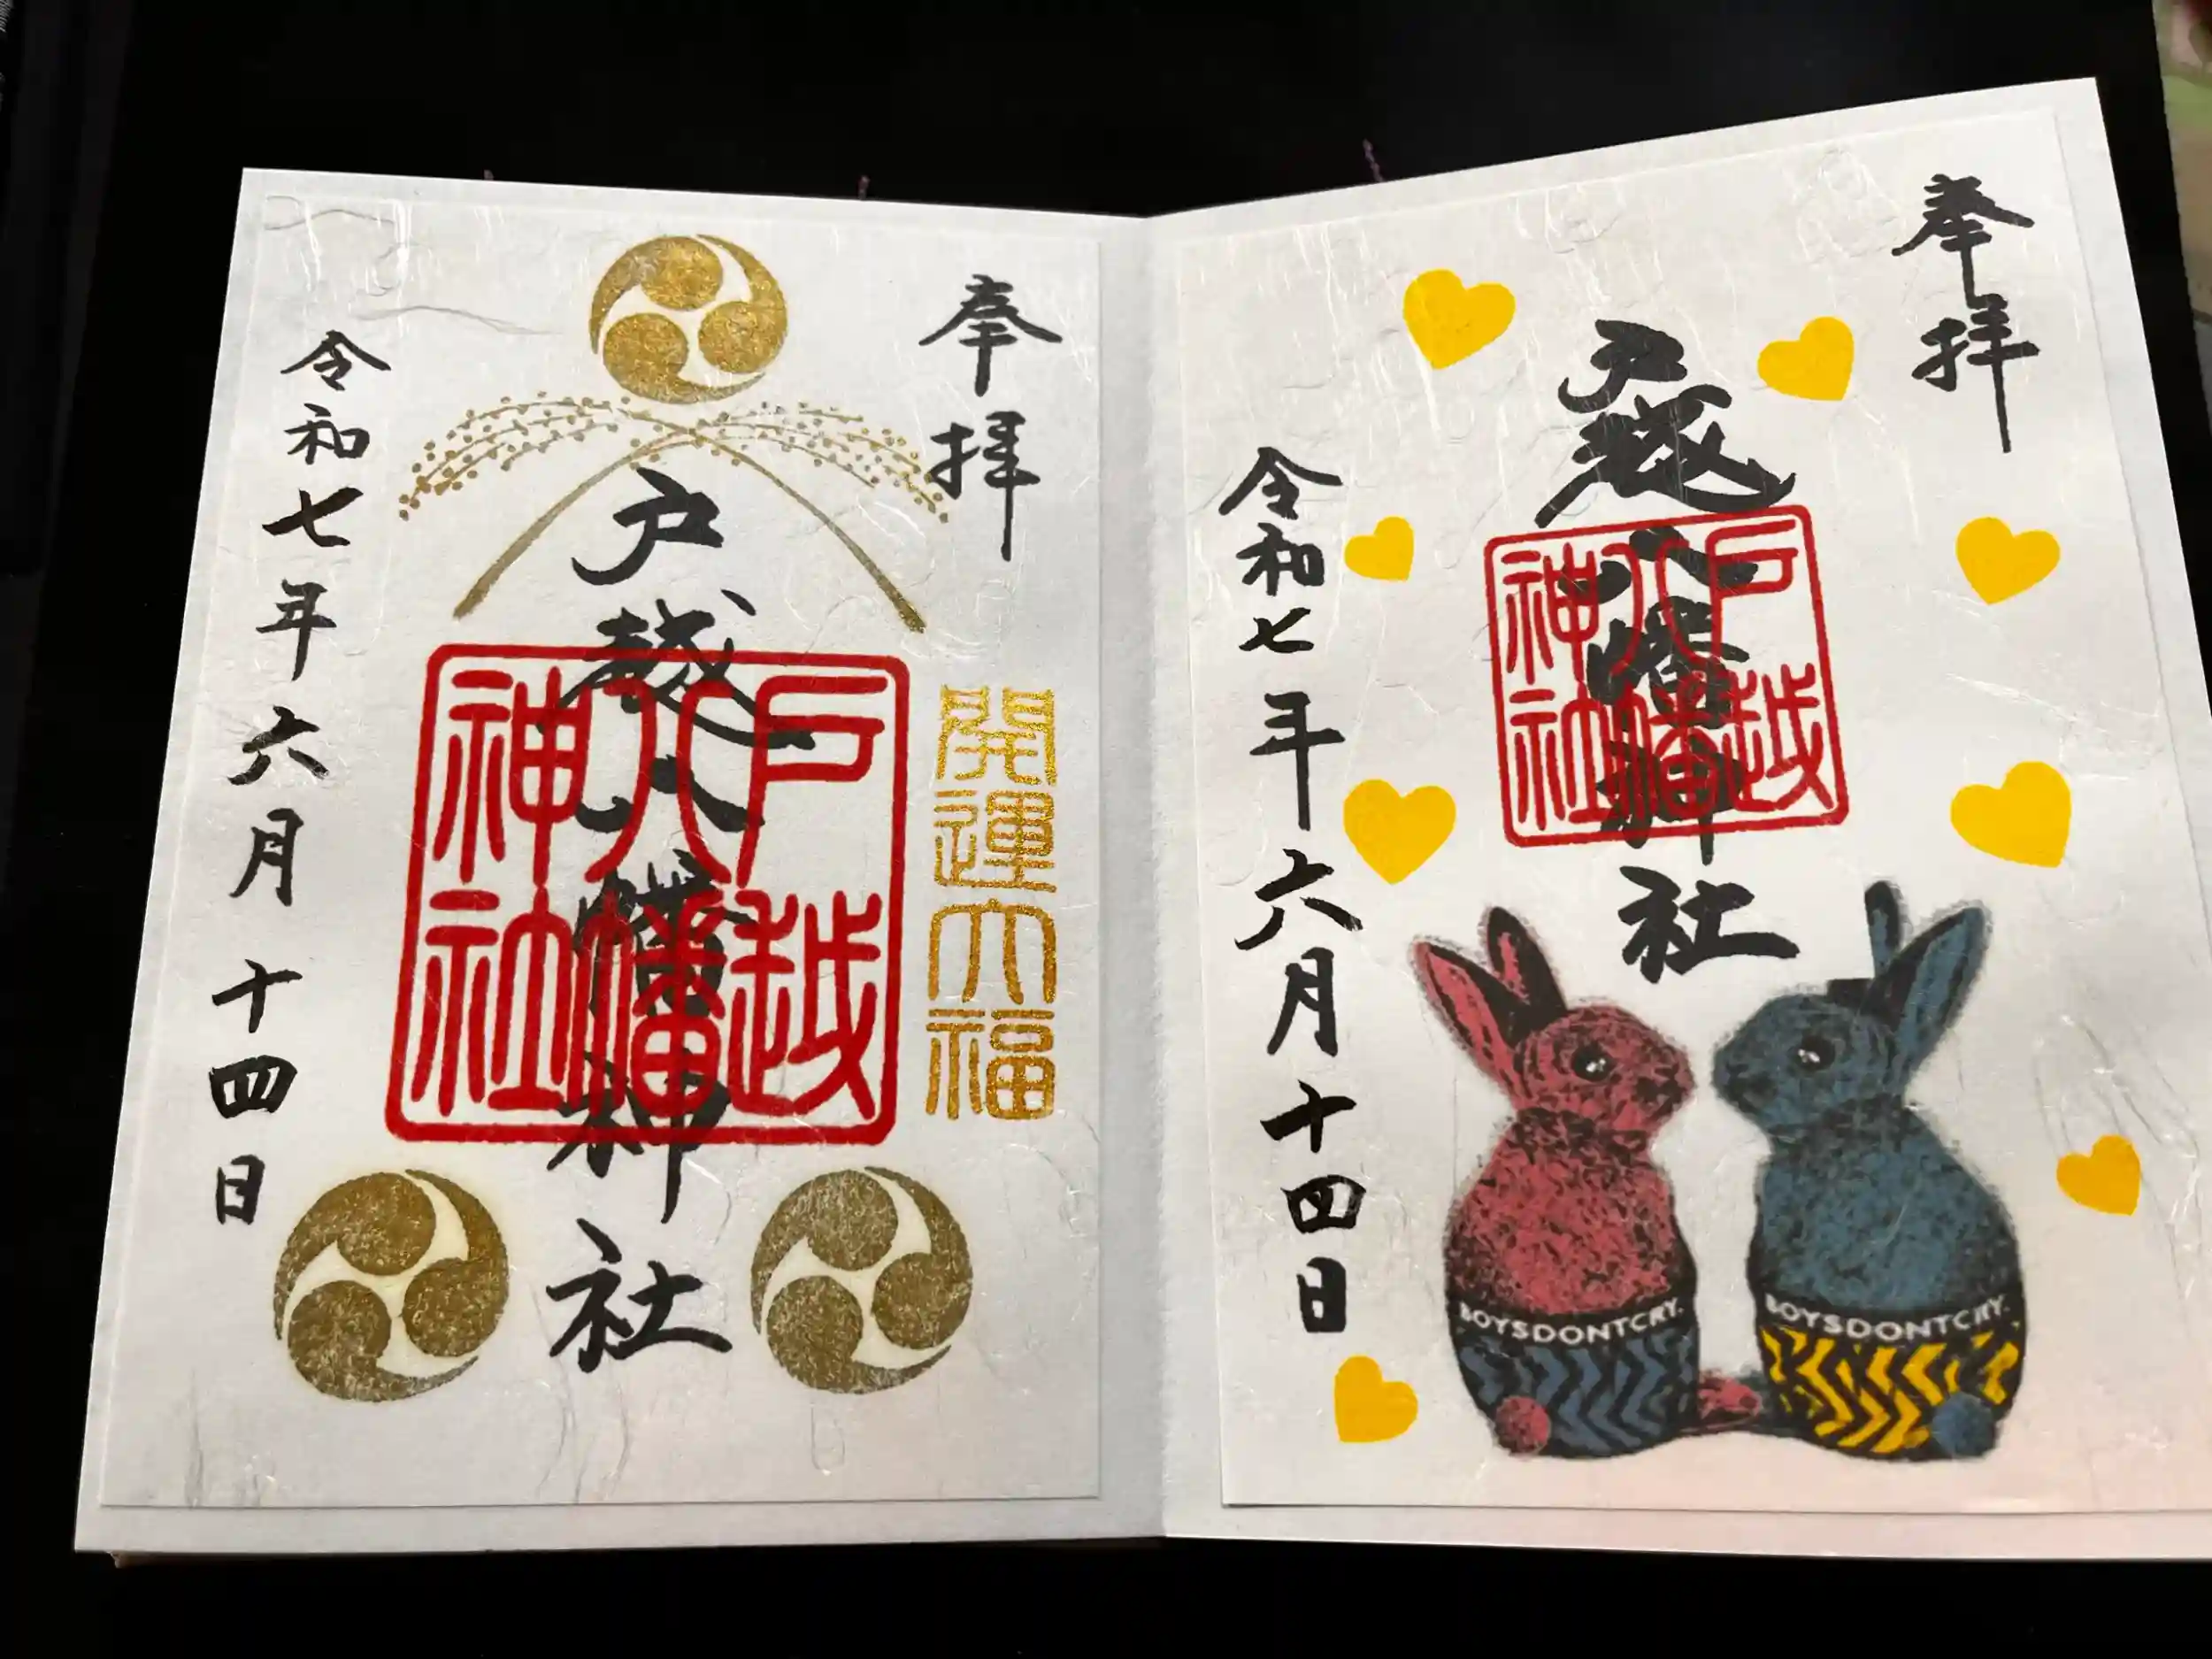 奉拝
戸越八幡神社
戸越
八幡
神社
令和七年六月十四日
BOYSDONTCRY.
BOYSDONTCRY.
奉拝
開運大福
戸越八幡神社
戸越
八幡
神社
令和七年六月十四日